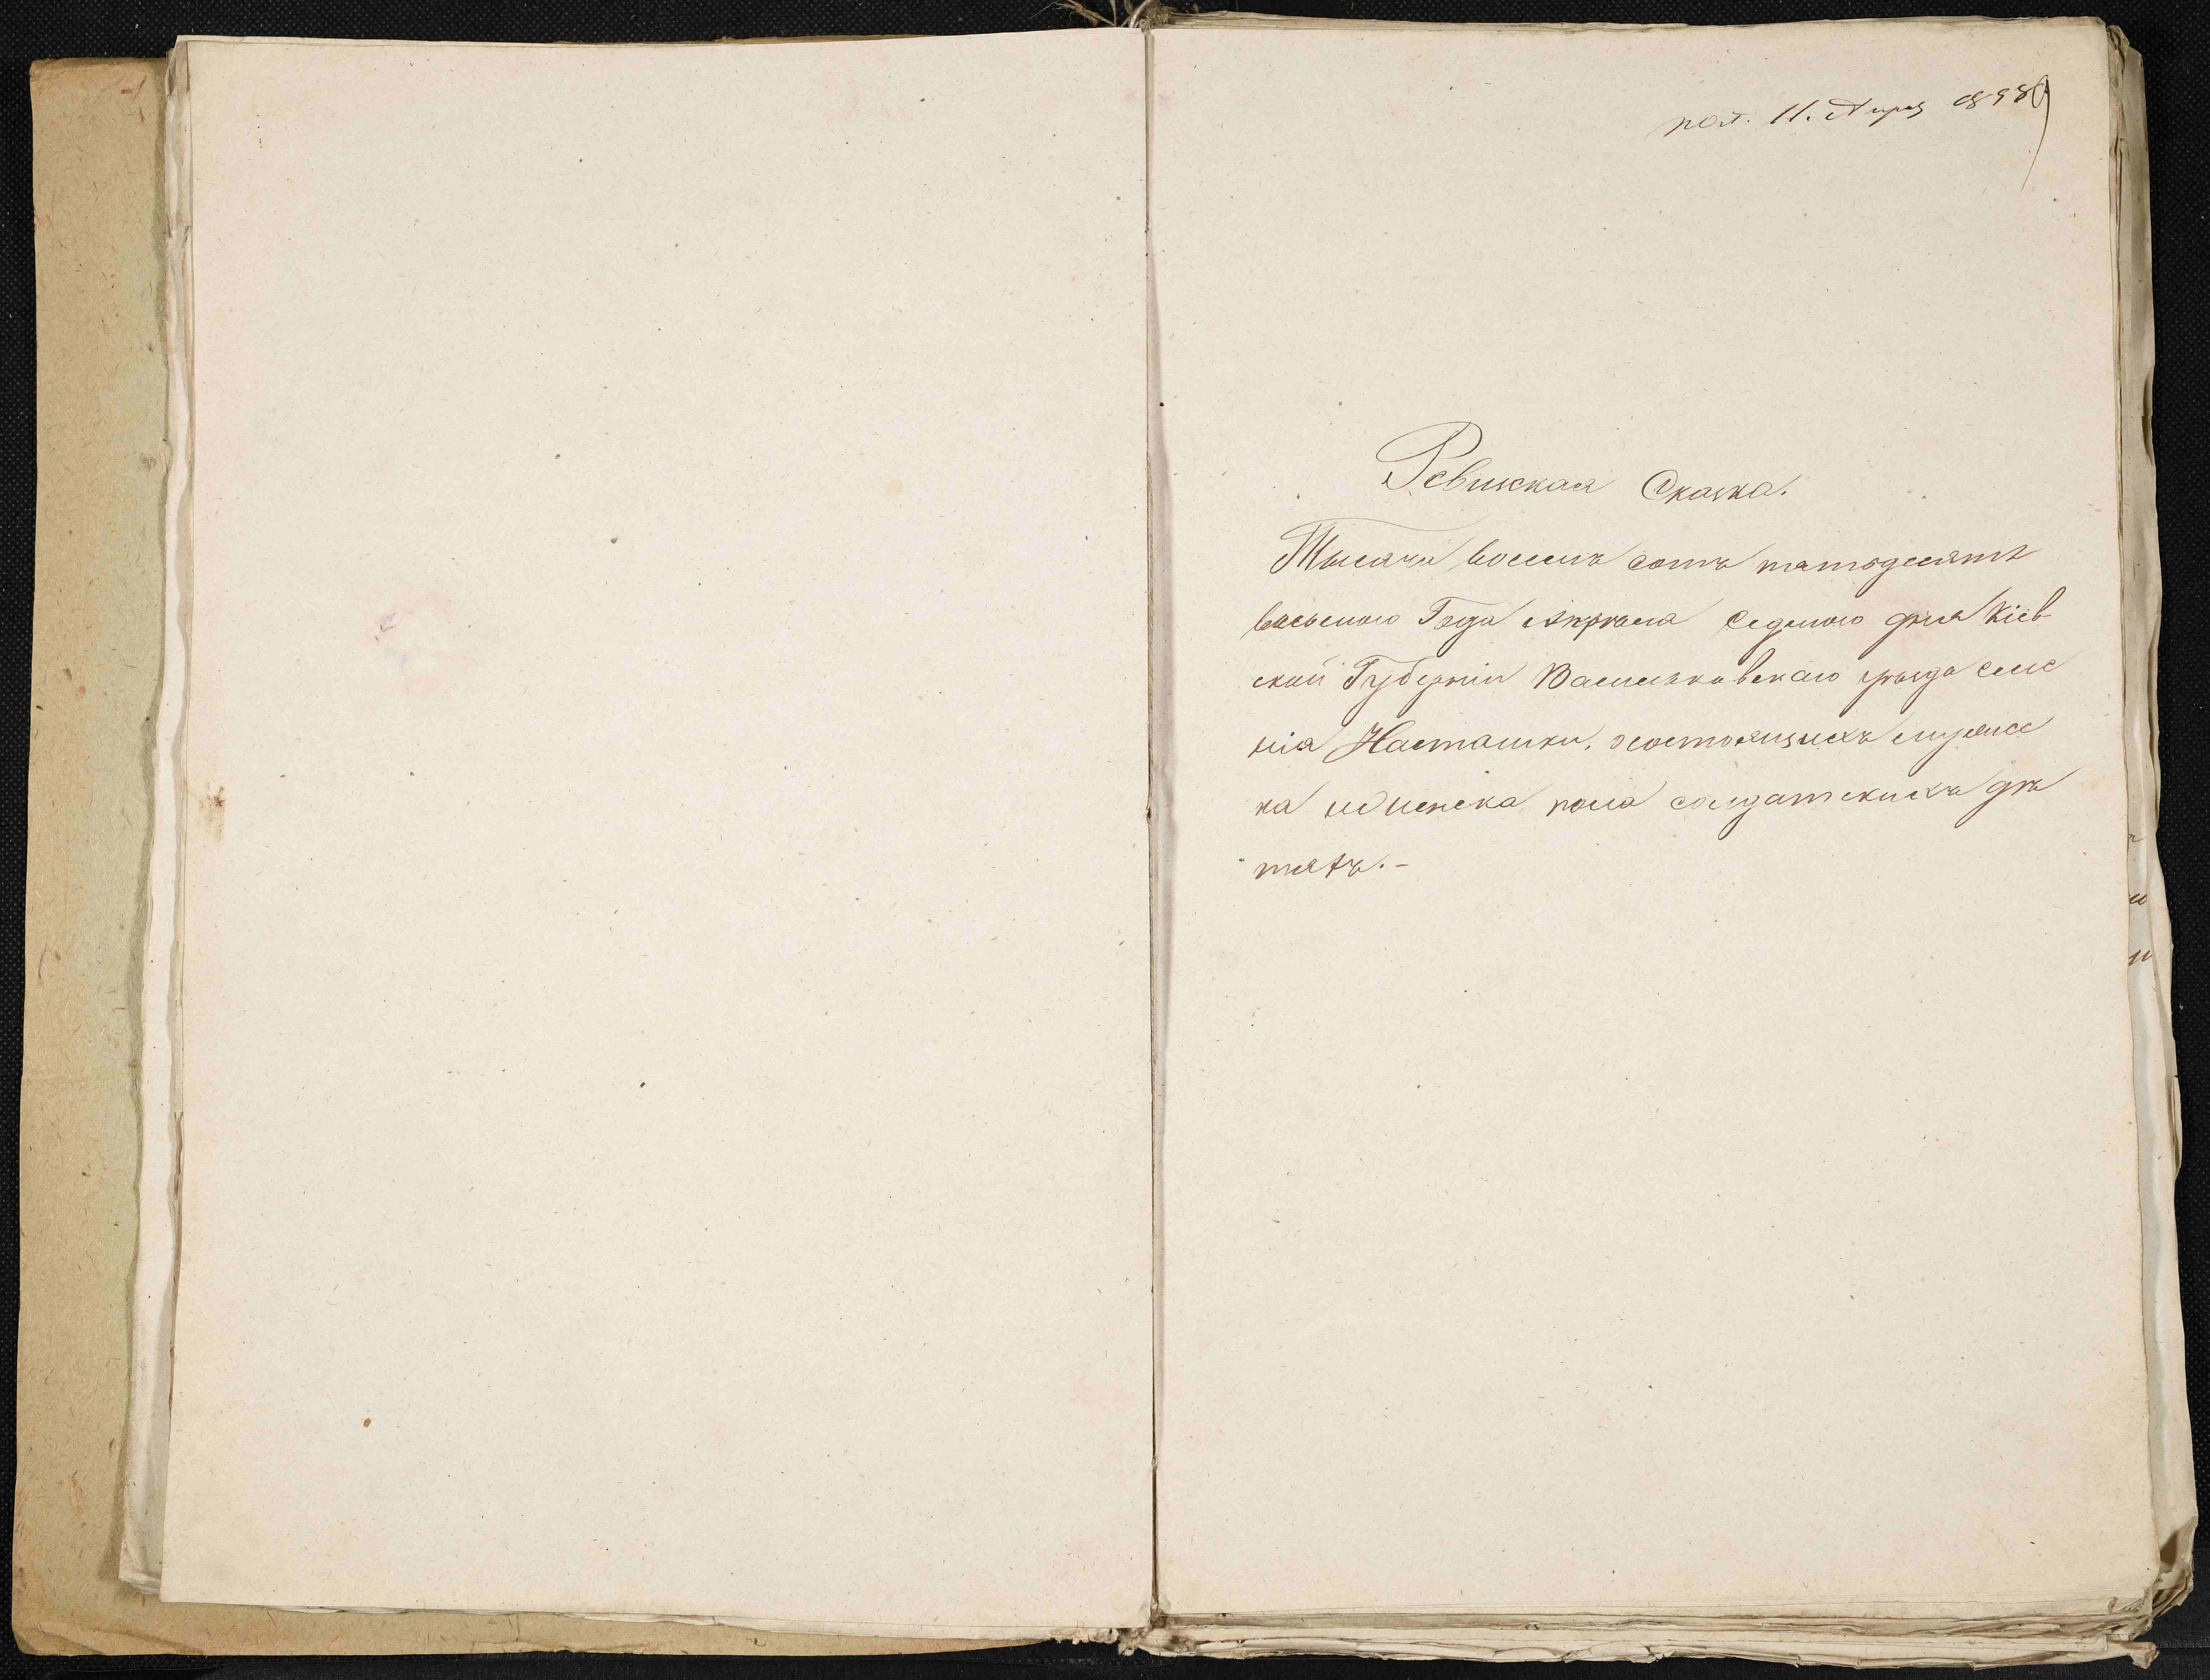 пол. 11. Апрѣ 1858
Ревиская Сказка.
Тысяча восемь сотъ пятьдесятъ
васьмого Года Апрѣля седмого дня Кіев
ской Губерніи Васильковскаго уѣзда селе
нія Насташки, состоящихъ мужес
ка и женска пола солдатскихъ дѣ
тятъ.-